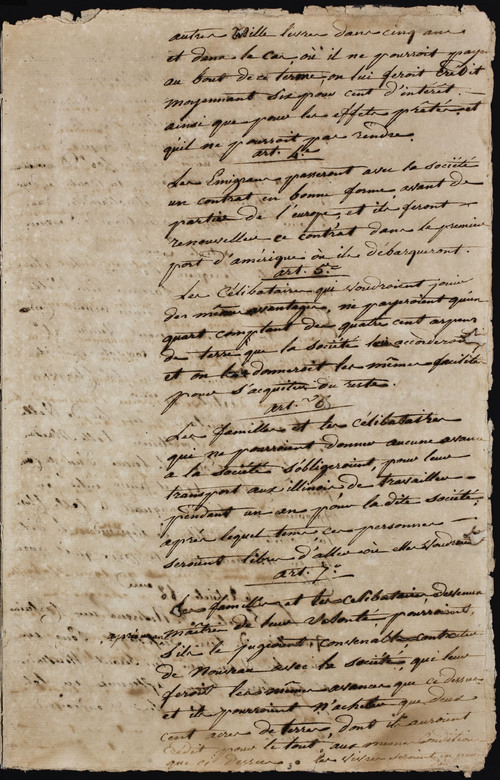 autres Mille livres dans cinq ans
et dans le cas, où il ne pourroit payer
au bout de ce terme, on lui feroit Crédit
moyennant Six pour cent d'intérêt.
ainsi que pour les effets prêtés, et
qu'il ne pourroit pas rendre.
art. 4.e
Les Emigrans passeront avec la société
un contrat en bonne forme avant de
partir de l'europe, et ils feront
renouveller ce contrat dans le premier
port d'amérique où ils débarqueront.
art. 5.e
Les Célibataires qui voudroient jouir
des mêmes avantages, ne payeroient qu'un
quart comptant des quatre cent arpens
de terre, que la société leur accorderoit
et on leur donneroit les mêmes facilités
pour s'acquitter du reste.
art. 6
Les familles et les célibataires
qui ne pourroient donner aucune avance
a la société s'obligeroient, pour leur
transport aux illinois de travailler
pendant un an pour la dite société
après lequel tems ces personnes
seroient libres d'aller où elles voudroient
art. 7.e
Les familles et les célibataires devenus
Maître de leur volonté, pourroient,
s'ils le jugeoient convenable contracter
de Nouveau avec la société, qui leur
feroit les mêmes avances que ci dessus
et ils pourroient n'acheter que deux
cent acres de terres, dont ils auroient
crédit pour le tout, aux mêmes conditions
que ci dessus les